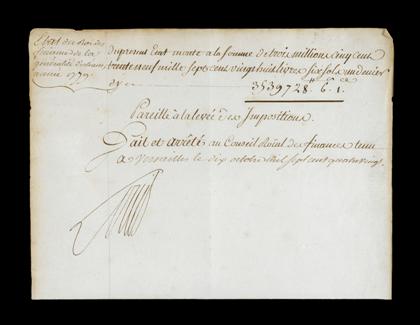 Etat du Roi des
finances de la
généralité d'orleans
année 1779.
du present Etat monte a la somme de trois millions cinq cent
trente neuf mille sept cens vingt huit livres six sols un denier
cy
3539728.# 6.s 1.d
Pareille à la levée des Impositions.
Fait et arrêté au Conseil Roïal des finances tenu
a Versailles le dix octobre Mil sept cent quatre vingt.